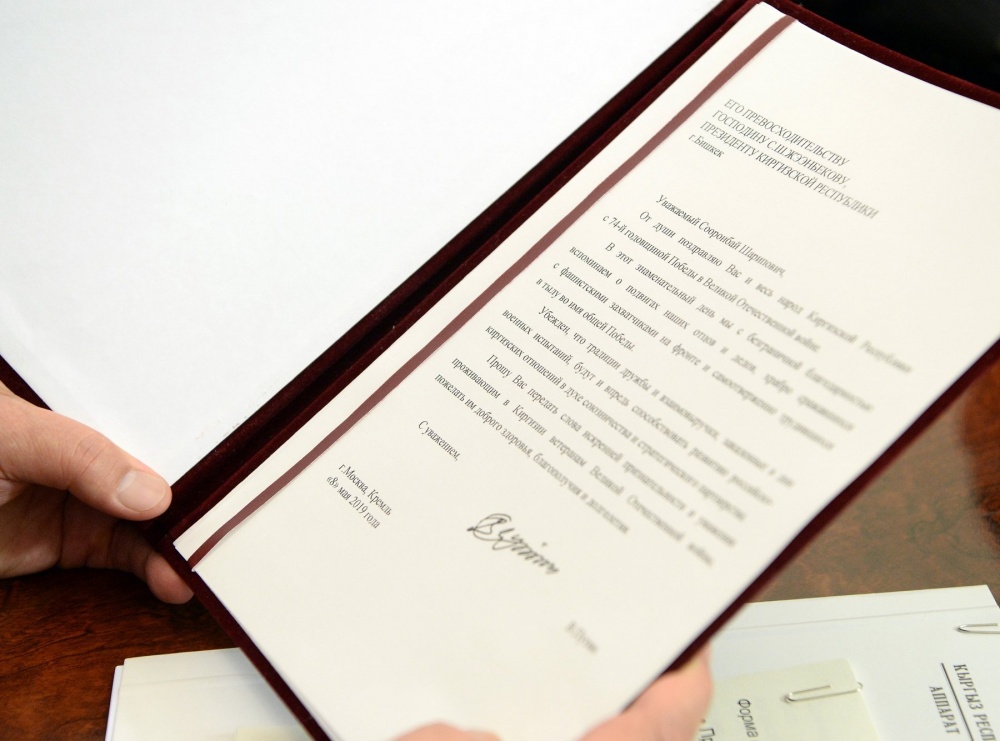 ЕГО ПРЕВОСХОДИТЕЛЬСТВУ
ГОСПОДИНУ С.Ш.ЖЭЭНБЕКОВУ,
ПРЕЗИДЕНТУ КИРГИЗСКОЙ РЕСПУБЛИКИ
г.Бишкек
Уважаемый Сооронбай Шарипович,
От души поздравляю Вас и весь народ Киргизской Республики
с 74-й годовщиной Победы в Великой Отечественной войне.
В этот знаменательный день мы с безграничной благодарностью
вспоминаем о подвигах наших отцов и дедов, храбро сражавшихся
с фашистскими захватчиками на фронте и самоотверженно трудившихся
в тылу во имя общей Победы.
Убежден, что традиции дружбы и взаимовыручки, заложенные в
военных испытаний, будут и впредь способствовать развитию российско-
киргизских отношений в духе союзничества и стратегического партнерства.
Прошу Вас передать слова искренней признательности и уважения
проживающим в Киргизии ветеранам Великой Отечественной войны,
пожелать им доброго здоровья, благополучия и долголетия.
С уважением,
г.Москва, Кремль
«8» мая 2019 года
В.Путин
Форма
КЫРГЫЗ РЕСП
АППАРАТ